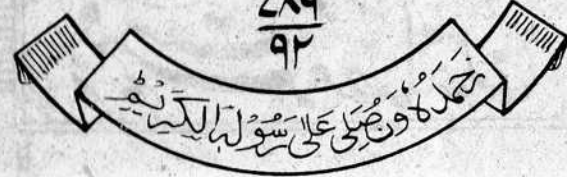 ۷۸۶
۹۲
نحمدہ ونصلی علی رسولہ الکریم